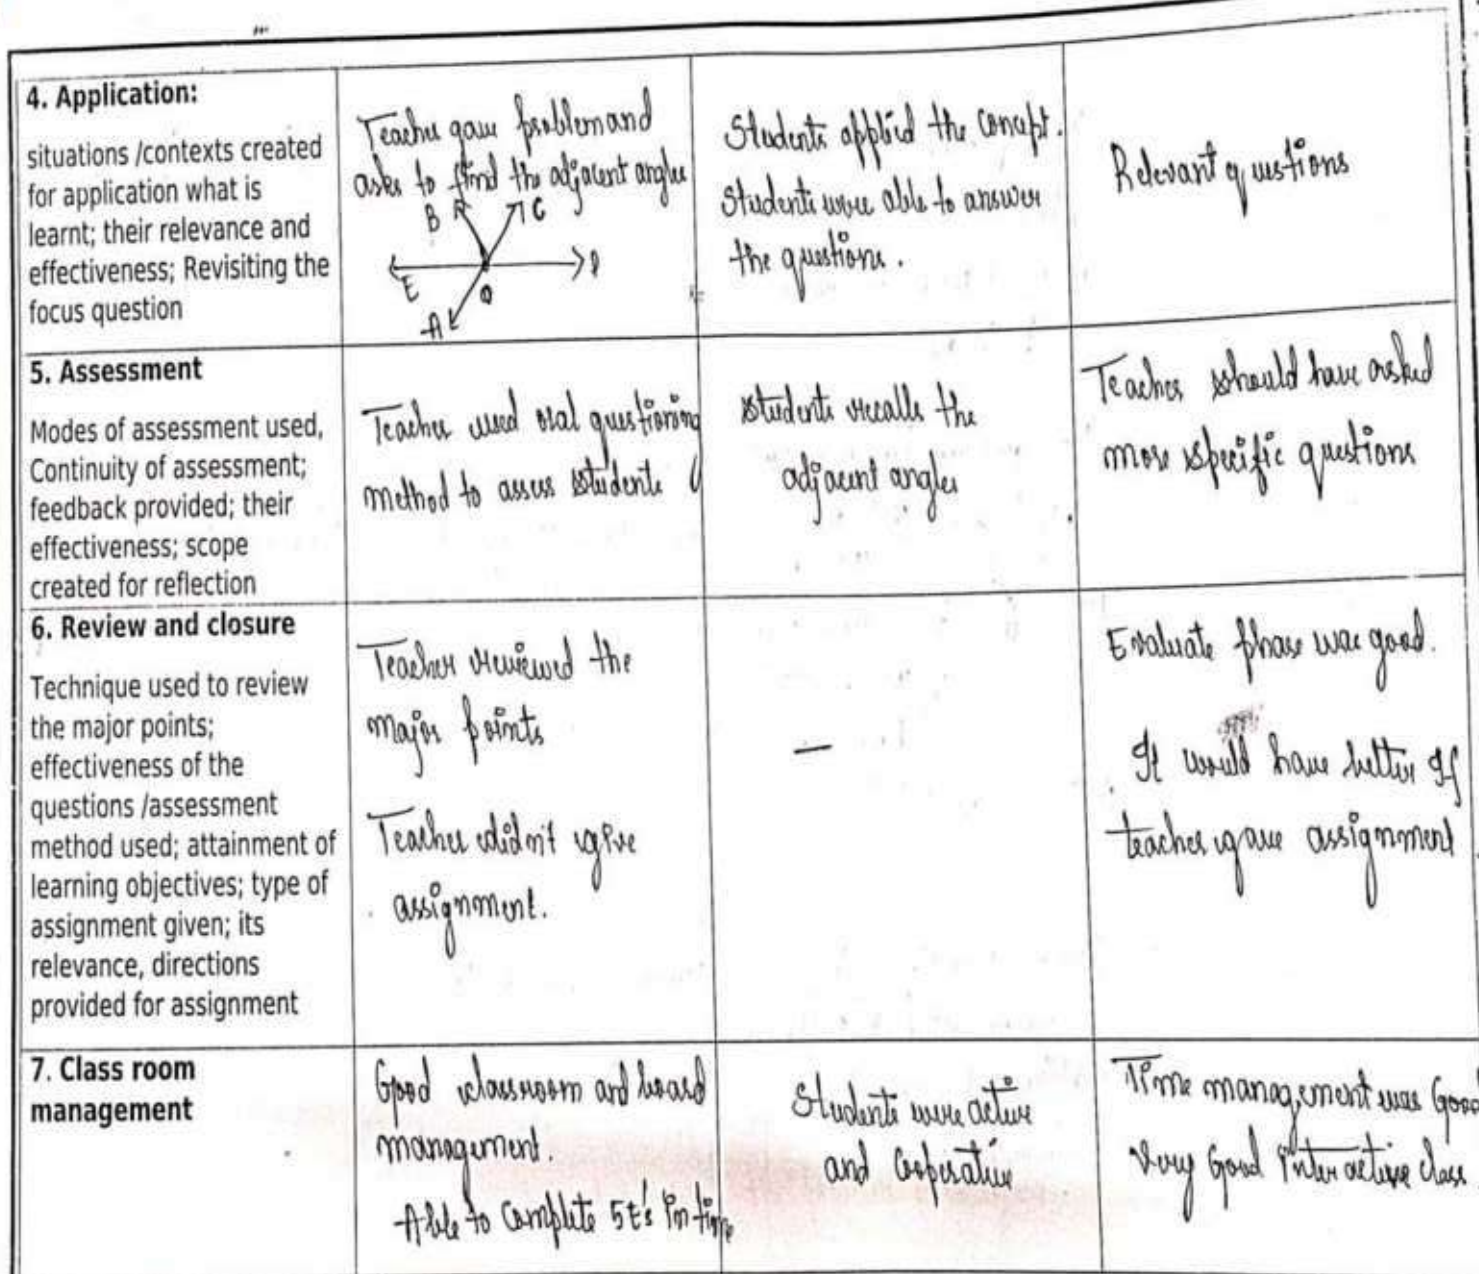 4. Application:
situations /contexts created
for application what is
learnt; their relevance and
effectiveness; Revisiting the
focus question
Teacher gave problem and
asks to find the adjacent angles
B C
E O D
A
Students applied the concept.
Students were able to answer
the questions.
Relevant questions
5. Assessment
Modes of assessment used,
Continuity of assessment;
feedback provided; their
effectiveness; scope
created for reflection
Teacher used oral questioning
method to assess students
students recalls the
adjacent angles
Teacher should have asked
more specific questions
6. Review and closure
Technique used to review
the major points;
effectiveness of the
questions /assessment
method used; attainment of
learning objectives; type of
assignment given; its
relevance, directions
provided for assignment
Teacher reviewed the
major points
Teacher didn't give
assignment.
—
Evaluate phase was good.
It would have better If
teacher gave assignment
7. Class room
management
Good classroom and board
management.
Able to complete 5E's in time
Students were active
and cooperative
Time management was Good
Very Good interactive class